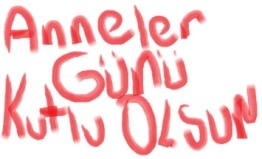 Anneler
Günü
Kutlu Olsun